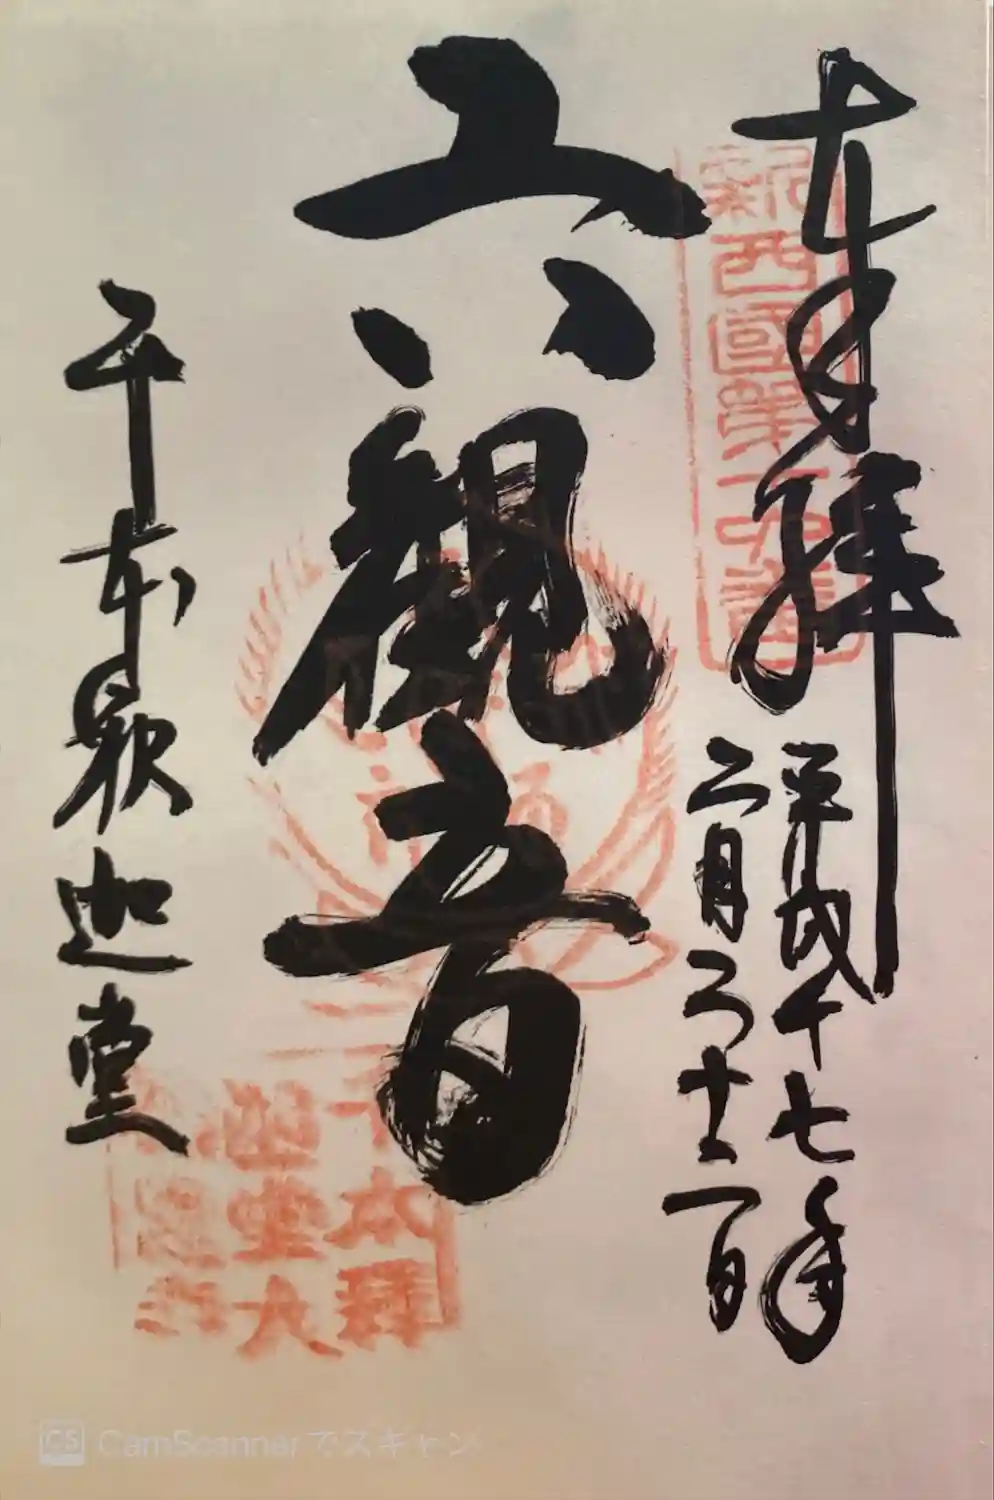 奉拝
平成十七年
二月
日
新西國第
番
六観音
千本釈迦堂
千本釋
迦堂大
報恩寺
CS CamScannerでスキャン